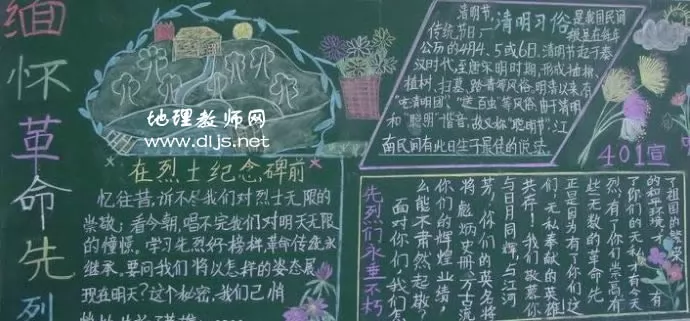 缅怀革命先列
地理教师网
www.dljs.net
在烈士纪念碑前
忆往昔,诉不尽我们对烈士无限的
崇敬;看今朝,唱不完我们对明天无限
的憧憬。学习先烈的榜样革命传统永
继承。要问我们将以怎样的姿态展
现在明天?这个秘密,我们已悄
清明节,
清明习俗
传统节日,
是我国民间
根据在每年
公历的4月4、5或6日。清明节起于秦
汉时代。至唐宋明时期,形成插柳、
植树、扫墓、踏青等风俗。明清以来有
"吃清明团"、
风俗。由于清明
和"聪明"谐音,故又称"聪明节"。江
南民间有此日生子最佳的说法。
401宣
先烈们永垂不朽
面对你们,我们怎
么能不肃然起敬?
你们的辉煌业绩,
将彪炳史册、万古流
芳,你们的英名将
与日月同辉,与江河
共存!我们敬慕你
们,无私奉献的英雄
正是因为有了你们这
些无数的革命先
烈,有了你们崇高
了你们的无私才有今天
的和平环境,才有
了祖国的繁荣